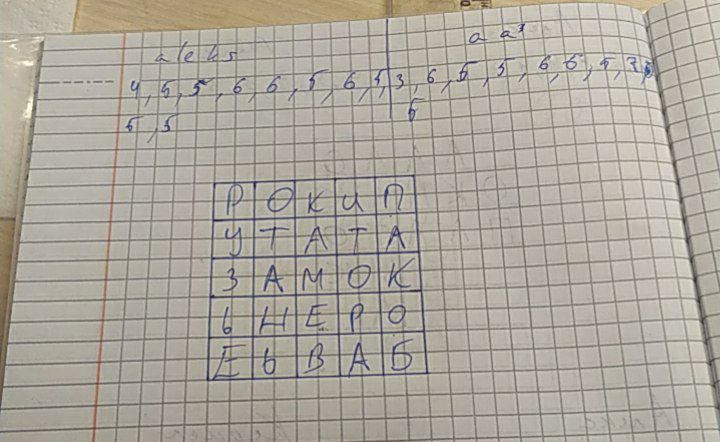 aleks
a a³
4, 5, 5, 6, 6, 5, 6, 5, 3, 6, 5, 5, 6, 6, 5, 3,
5, 5
5
Р О К И П
У Т А Т А
З А М О К
Ь Н Е Р О
Е Ь В А Б